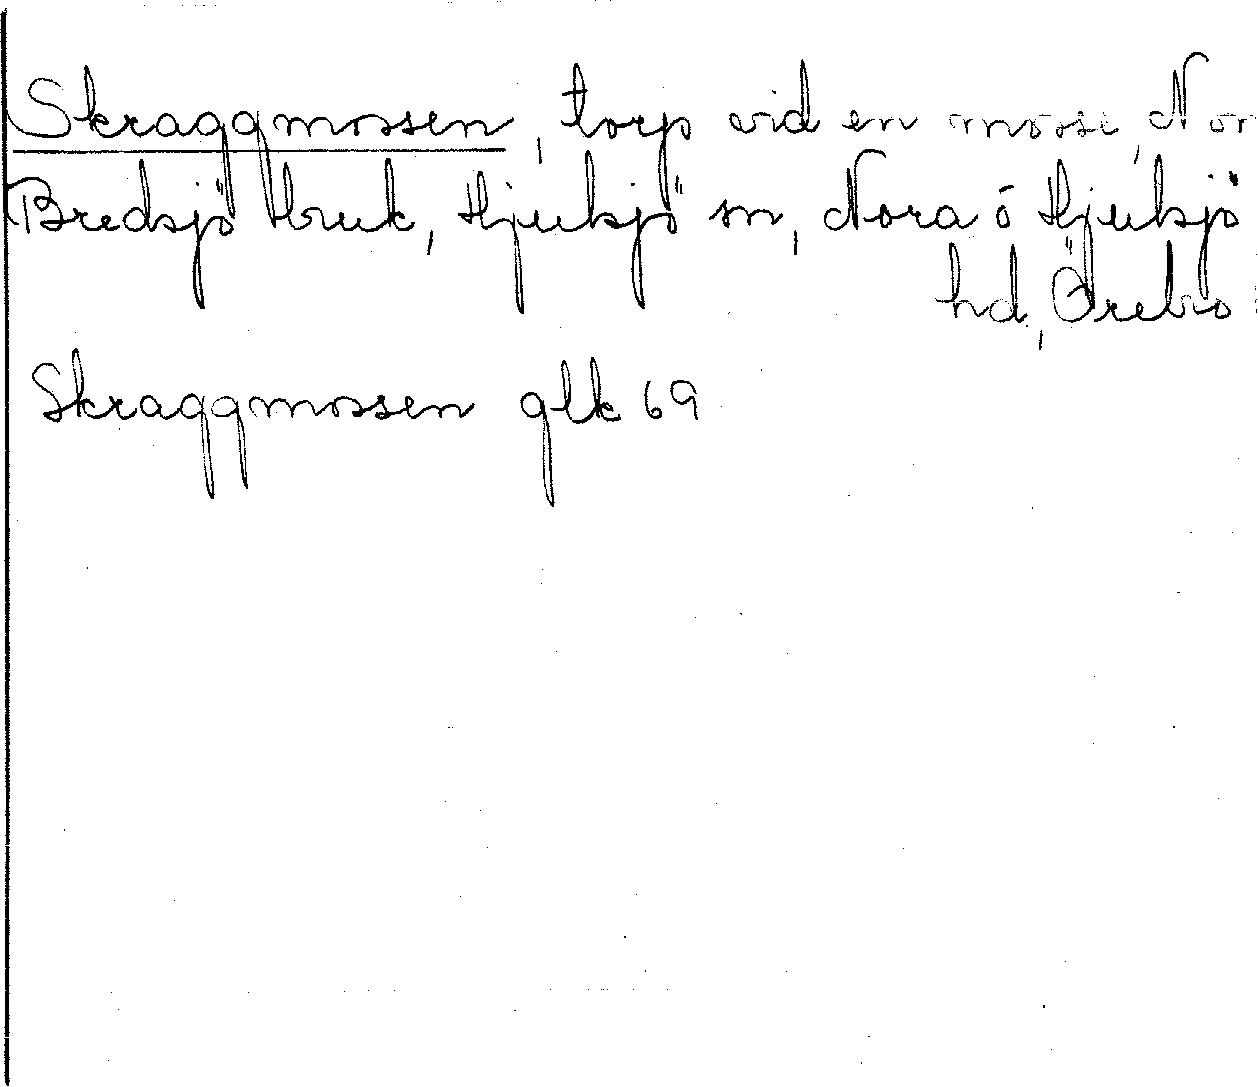 Skraggmossen, torp vid en mosse, Nor
Bredsjö bruk, Hjulsjö sn, Nora o Hjulsjö
hd, Örebro
Skraggmossen glk 69